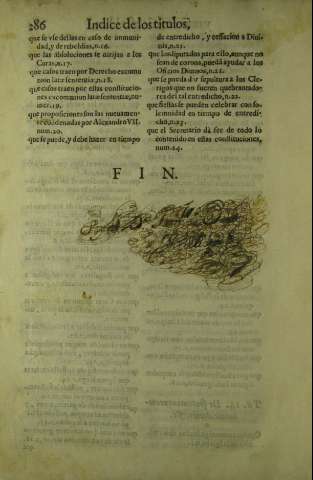 286 Indice de los titulos,
que se vse dellas en caso de inmuni-
dad, y de rebeldias, n.16.
que las absoluciones se dirijan a los
Curas, n.17.
que casos traen por Derecho excomu
nion latæ sententiæ, n.18.
que casos traen por estas constitucio
nes excomunion latæ sententiæ, nu-
mer.19.
que proposiciones son las nueuamen-
te condenadas por Alexandro VII.
num.20.
que se puede, y debe hacer en tiempo
de entredicho, y cessacion a Diui-
nis, n.21.
que los diputados para ello, aunque no
sean de corona, pueda ayudar a los
Oficios Diuinos, n.22.
que se pueda dar sepultura a los Cle-
rigos que no fueren quebrantado-
res del tal entredicho, n.22.
que fiestas se pueden celebrar con so-
lemnidad en tiempo de entredi-
cho, n.23.
que el Secretario dà fee de todo lo
contenido en estas constituciones,
num.24.
FIN.